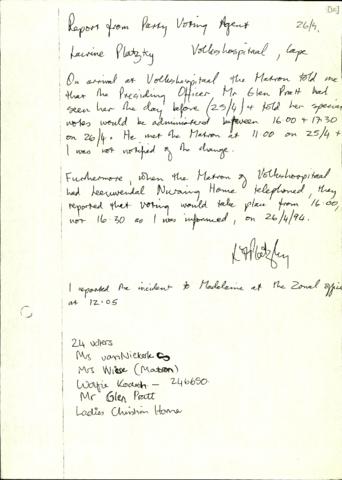 Report from Party Voting Agent 26/4.
Laurine Platzky Volkshospitaal, Cape
On arrival at Volkshospitaal the Matron told me
that the Presiding Officer Mr Glen Pratt had
seen her the day before (25/4) & told her special
votes would be administered between 16:00 & 17:30
on 26/4. He met the Matron at 11:00 on 25/4 &
I was not notified of the change.
Furthermore, when the Matron of Volkshospitaal
had Leeuwendal Nursing Home telephoned, they
reported that voting would take place from 16:00,
not 16:30 as I was informed, on 26/4/94.
I reported the incident to Madeleine at the Zonal office
at 12.05
24 voters
Mrs van Niekerk
Mrs Wiese (Matron)
Kodach - 246650.
Mr Glen Pratt
Ladies Christian Home